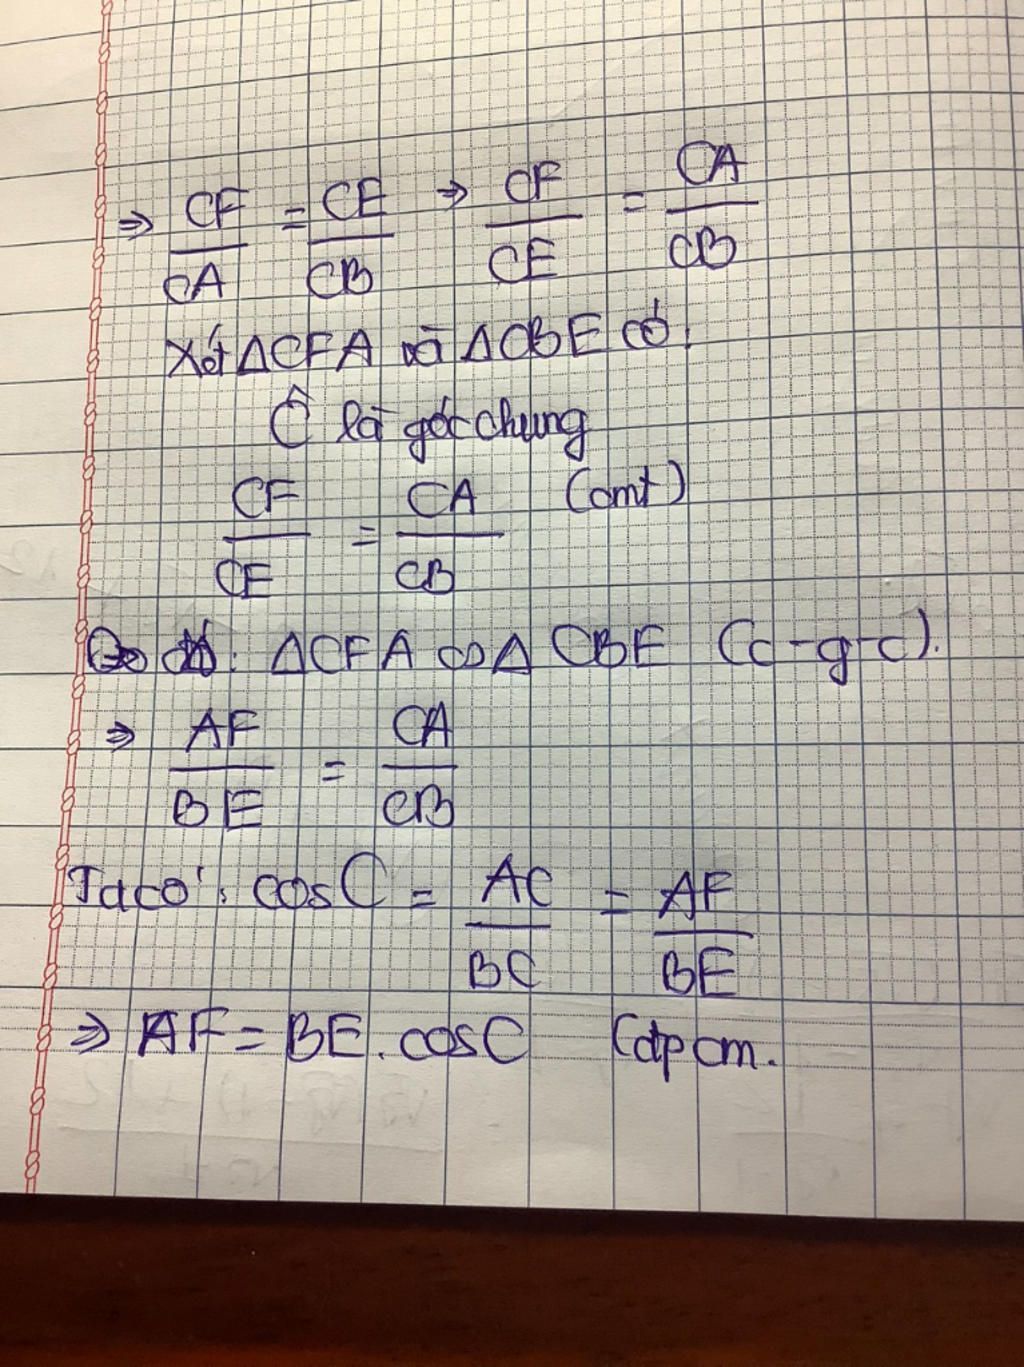 ⇒ CF/CA = CE/CB ⇒ CF/CE = CA/CB
Xét ΔCFA và ΔCBE có:
Ĉ là góc chung
CF/CE = CA/CB (cmt)
Do đó: ΔCFA ∽ Δ CBE (c-g-c).
⇒ AF/BE = CA/CB
Ta có: cosC = AC/BC = AF/BE
⇒ AF = BE. cosC (đpcm.